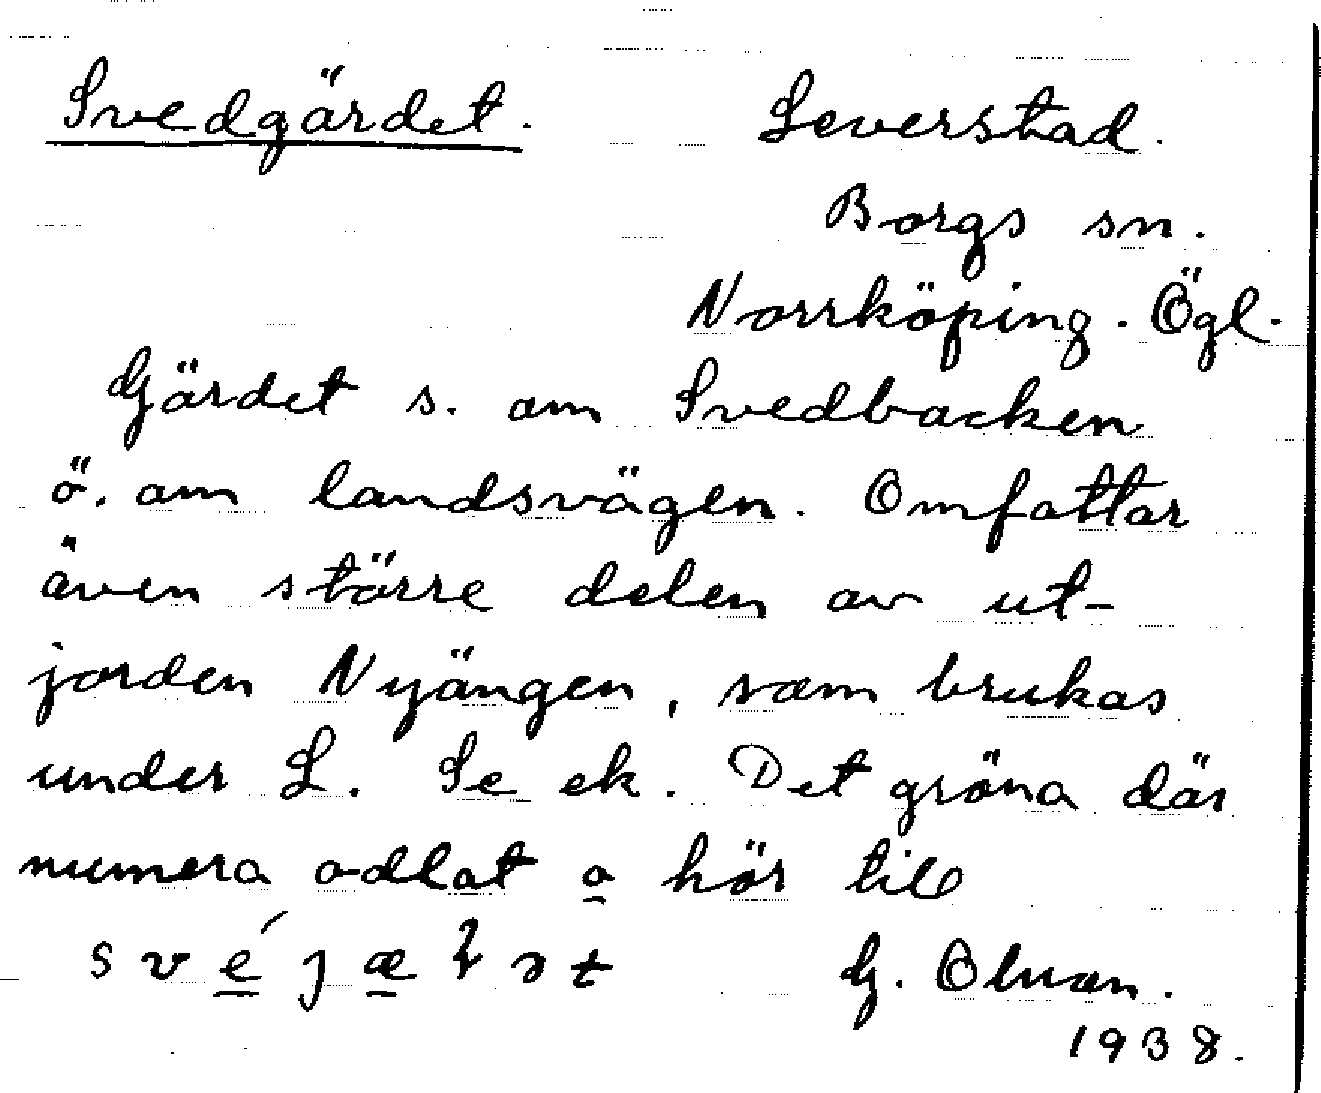 Svedgärdet. Leverstad.
Borgs sn.
Norrköping. Ögl.
Gärdet s. om Svedbacken
ö. om landsvägen. Omfattar
även större delen av ut-
jorden Nyängen, som brukas
under L. Se ek. Det gröna där
numera odlat o hör till
G. Olson.
1938.